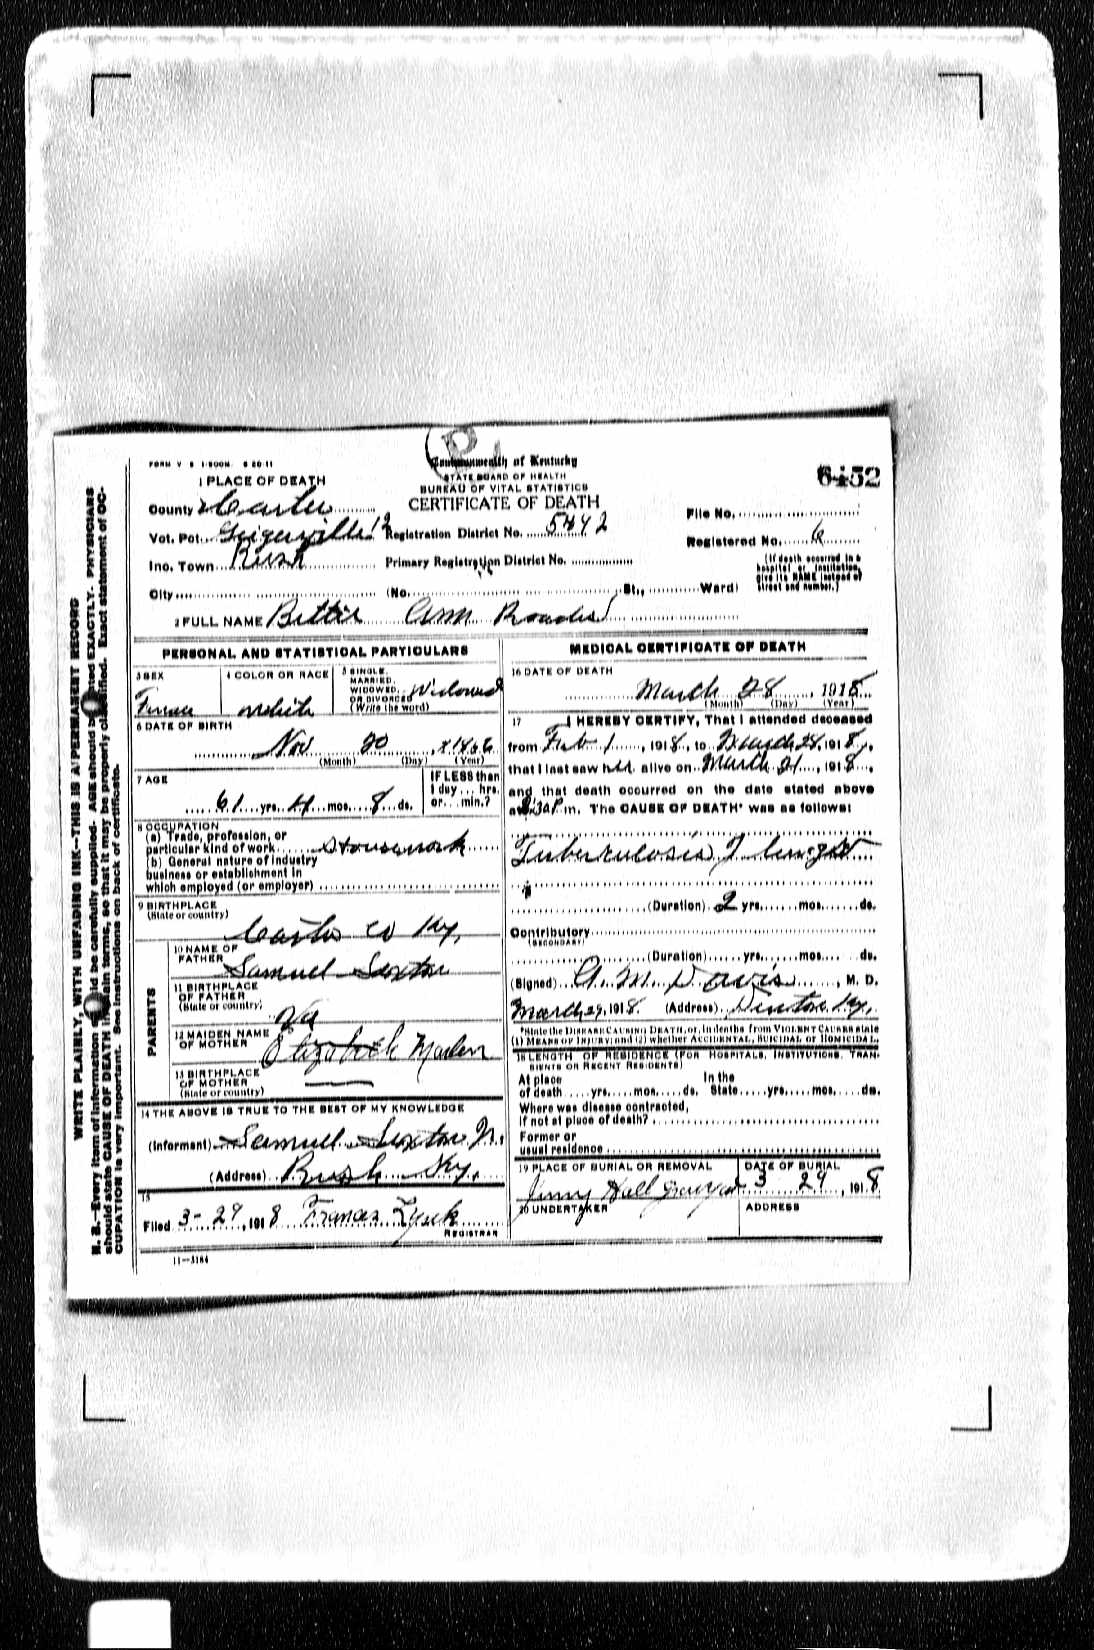 FORM V S 1-500M 8 20 11
Commonwealth of Kentucky
STATE BOARD OF HEALTH
BUREAU OF VITAL STATISTICS
CERTIFICATE OF DEATH
6452
1 PLACE OF DEATH
County Carter
Vot. Pct. Geigerville 12
Registration District No. 5442
File No.
Ino. Town Rush
Primary Registration District No.
Registered No. 6
City
(No. St., Ward)
(If death occurred in a hospital or institution, give its NAME instead of street and number.)
2 FULL NAME Bettie Ann
PERSONAL AND STATISTICAL PARTICULARS
3 SEX
4 COLOR OR RACE White
5 SINGLE, MARRIED, WIDOWED, OR DIVORCED (Write the word) Widowed
6 DATE OF BIRTH
Nov 20
(Month) (Day) (Year)
7 AGE
61 yrs. 4 mos. 8 ds.
IF LESS than 1 day ... hrs. or ... min.?
8 OCCUPATION
(a) Trade, profession, or particular kind of work Housework
(b) General nature of industry business or establishment in which employed (or employer)
9 BIRTHPLACE
(State or country)
Carter Co Ky.
PARENTS
10 NAME OF FATHER Samuel Sexton
11 BIRTHPLACE OF FATHER (State or country) Va
12 MAIDEN NAME OF MOTHER Elizabeth
13 BIRTHPLACE OF MOTHER (State or country)
14 THE ABOVE IS TRUE TO THE BEST OF MY KNOWLEDGE
(Informant) Samuel Sexton Jr.
(Address) Rush Ky.
15
Filed 3-29, 1918 Frances
REGISTRAR
11-3184
MEDICAL CERTIFICATE OF DEATH
16 DATE OF DEATH
March 28, 1918
(Month) (Day) (Year)
17 I HEREBY CERTIFY, That I attended deceased
from Feb 1, 1918, to March 28, 1918,
that I last saw her alive on March 21, 1918,
and that death occurred on the date stated above
at m. The CAUSE OF DEATH* was as follows:
Tuberculosis of lungs
(Duration) 2 yrs. mos. ds.
Contributory
(SECONDARY)
(Duration) yrs. mos. ds.
(Signed) A. M. Davis, M. D.
March 29, 1918 (Address) Denton Ky.
*State the DISEASE CAUSING DEATH, or, in deaths from VIOLENT CAUSES state
(1) MEANS OF INJURY; and (2) whether ACCIDENTAL, SUICIDAL or HOMICIDAL.
18 LENGTH OF RESIDENCE (FOR HOSPITALS, INSTITUTIONS, TRANSIENTS OR RECENT RESIDENTS)
At place of death yrs. mos. ds. In the State yrs. mos. ds.
Where was disease contracted,
if not at place of death?
Former or
usual residence
19 PLACE OF BURIAL OR REMOVAL
Hall Graveyard
DATE OF BURIAL
3 29, 1918
20 UNDERTAKER
ADDRESS
WRITE PLAINLY, WITH UNFADING INK—THIS IS A PERMANENT RECORD
N. B.—Every item of information should be carefully supplied. AGE should be stated EXACTLY. PHYSICIANS
should state CAUSE OF DEATH in plain terms, so that it may be properly classified. Exact statement of OC-
CUPATION is very important. See instructions on back of certificate.